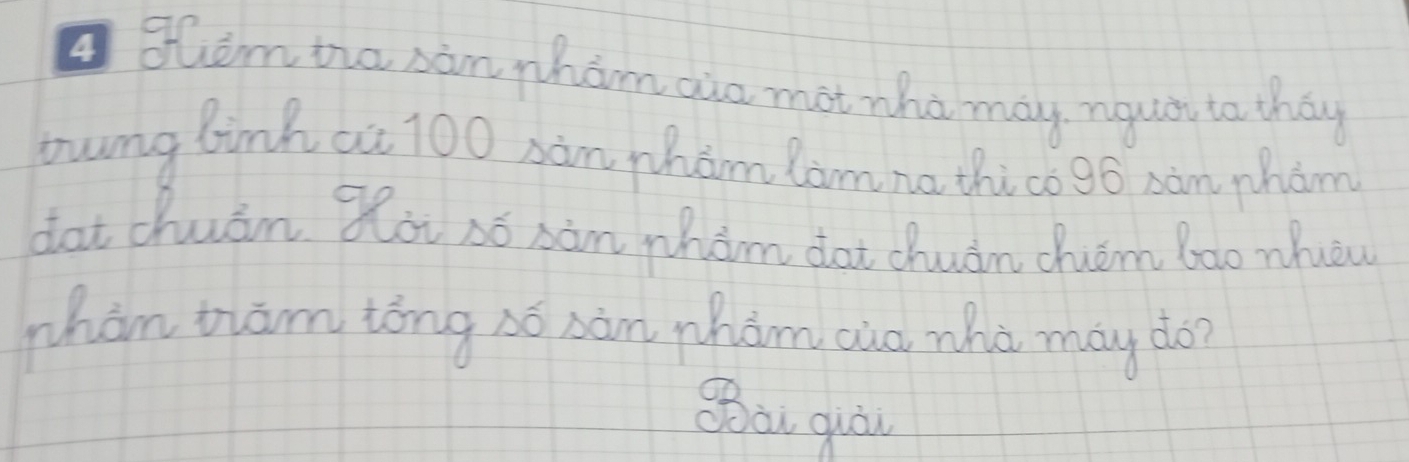 4 Kiểm tra sản phẩm của một nhà máy, người ta thấy
trung bình cứ 100 sản phẩm làm ra thì có 96 sản phẩm
đạt chuẩn. Hỏi số sản phẩm đạt chuẩn chiếm bao nhiêu
phần trăm tổng số sản phẩm của nhà máy đó?
Bài giải